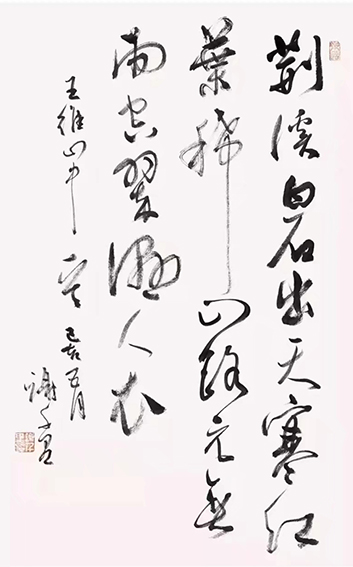 荆溪白石出天寒紅
葉稀山路元無
雨空翠濕人衣
王維山中
己亥五月
謝